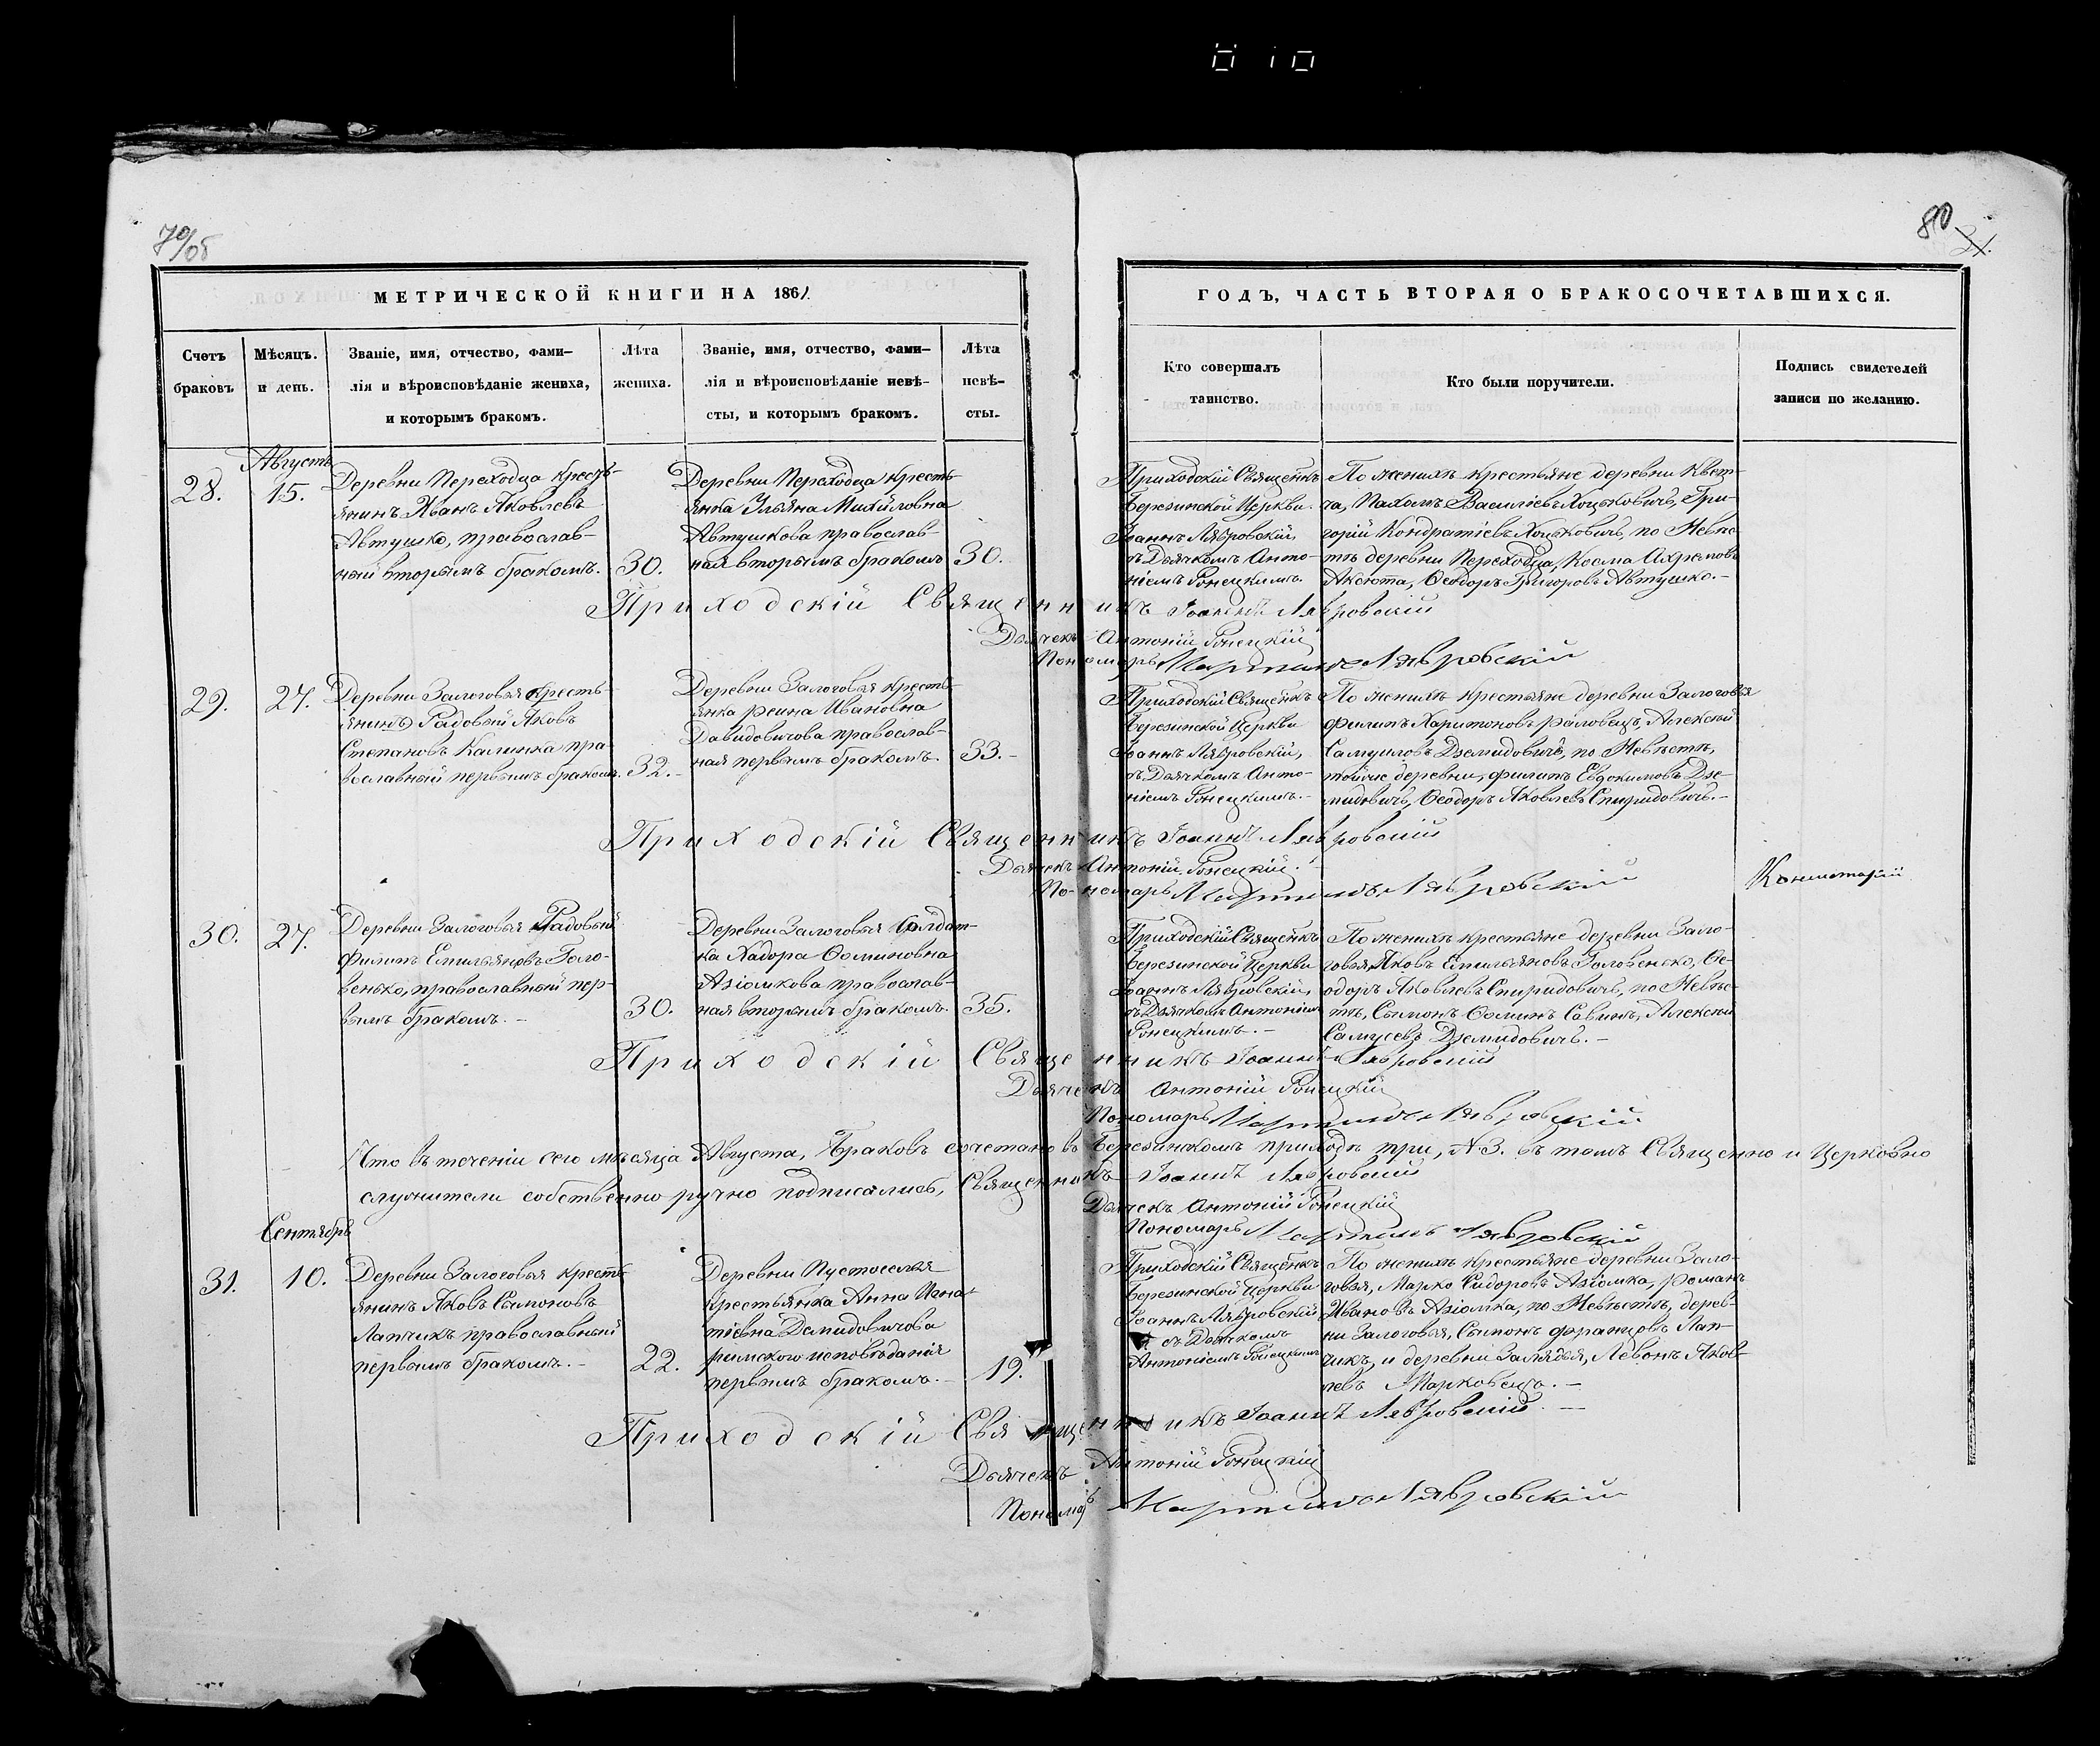 70/об
80
31.
МЕТРИЧЕСКОЙ КНИГИ НА 1861
ГОДЪ, ЧАСТЬ ВТОРАЯ О БРАКОСОЧЕТАВШИХСЯ.
Счетъ
браковъ
Мѣсяцъ.
и день.
Званіе, имя, отчество, фами–
лія и вѣроисповѣданіе жениха,
и которымъ бракомъ.
Лѣта
жениха.
Званіе, имя, отчество, фами–
лія и вѣроисповѣданіе невѣ–
сты, и которымъ бракомъ.
Лѣта
невѣ–
сты.
Кто совершалъ
таинство.
Кто были поручители.
Подпись свидетелей
записи по желанію.
Августъ
28.
15.
Деревни Переходца Кресть-
янинъ Иванъ Яковлевъ
Автушко, православ-
ный вторымъ бракомъ.
30.
Деревни Переходца Кресть-
янка Ульяна Михайловна
Автушкова православ-
ная вторымъ бракомъ
30.
Приходскій Священикъ
Березинской Церкви
Іоаннъ Лявровскій,
съ Дьячкомъ Анто-
ніемъ Гонецкимъ.
По женихѣ крестьяне деревни Квет-
ча, Пахомъ Василіевъ Хоцьковичъ, Гри-
горій Кондратіевъ Хоцьковичъ, по Невѣс-
тѣ деревни Переходца, Косма Ахремовъ
Аксюта, Ѳеодоръ Григоровъ Автушко.–
Приходскій Священникъ Іоаннъ Лявровскій
Дьячекъ Антоній Гонецкій
Пономарь Мартинъ Лявровскій
29.
27.
Деревни Залоговья кресть-
янинъ Радовый Яковъ
Степановъ Калинка пра-
вославный первымъ бракомъ.
32.–
Деревни Залоговья кресть-
янка Реина Ивановна
Давидовичова православ-
ная первымъ бракомъ.
33.–
Приходскій Священикъ
Березинской Церкви
Іоаннъ Лявровскій,
съ Дьячкомъ Анто-
ніемъ Гонецкимъ.–
По женихѣ крестьяне деревни Залоговья
Филипъ Харитоновъ Раловецъ, Алексѣй
Самуиловъ Дземидовичъ, по Невѣстѣ,
тойже деревни, Филипъ Евдокимовъ Дзе-
мидовичъ, Ѳеодоръ Яковлевъ Спиридовичъ.–
Приходскій Священникъ Іоаннъ Лявровскій
Дьячекъ Антоній Гонецкій.
Пономарь Мартинъ Лявровскій
30.
27.
Деревни Залоговья Радовый
Филипъ Емильяновъ Голо-
венько, православный пер-
вымъ бракомъ.–
30.
Деревни Залоговья Солдат-
ка Хадора Ѳоминовна
Азіомкова православ-
ная вторымъ бракомъ.
35.
Приходскій Священикъ
Березинской Церкви
Іоаннъ Лявровскій,
съ Дьячкомъ Антоніемъ
Гонецкимъ.–
По женихѣ крестьяне деревни Зало-
говья, Яковъ Емильяновъ Головенько, Ѳе-
одоръ Яковлевъ Спиридовичъ, по Невѣс-
тѣ, Сымонъ Ѳоминъ Савинъ, Алексѣй
Самусевъ Дземидовичъ.–
Приходскій Священникъ Іоаннъ Лявровскій
Дьячекъ Антоній Гонецкій
Пономарь Мартинъ Лявровскій
Что въ теченіи сего мѣсяца Августа, Браковъ сочетано въ Березинскомъ приходѣ три, № 3. въ томъ Священно и Церковно
служители собственно ручно подписались, Священникъ Іоаннъ Лявровскій
Дьячекъ Антоній Гонецкій
Пономарь Мартинъ Лявровскій
Сентябрь
31.
10.
Деревни Залоговья Кресть-
янинъ Яковъ Сымоновъ
Лапчикъ православный
первымъ бракомъ.–
22.
Деревни Пустоселья
Крестьянка Анна Игна-
тіевна Демидовичова
римскаго исповѣданія
первымъ бракомъ.–
19.
Приходскій Священикъ
Березинской Церкви
Іоаннъ Лявровскій
съ Дьячкомъ
Антоніемъ Гонецкимъ
По женихѣ крестьяне деревни Зало-
говья, Марко Сидоровъ Азіомка, Романъ
Ивановъ Азіомка, по Невѣстѣ, дерев-
ни Залоговья, Сымонъ Францовъ Лап-
чикъ, и деревни Замядья, Левонъ Яков-
левъ Марковецъ.–
Приходскій Священникъ Іоаннъ Лявровскій.–
Дьячекъ Антоній Гонецкій
Пономарь Мартинъ Лявровскій